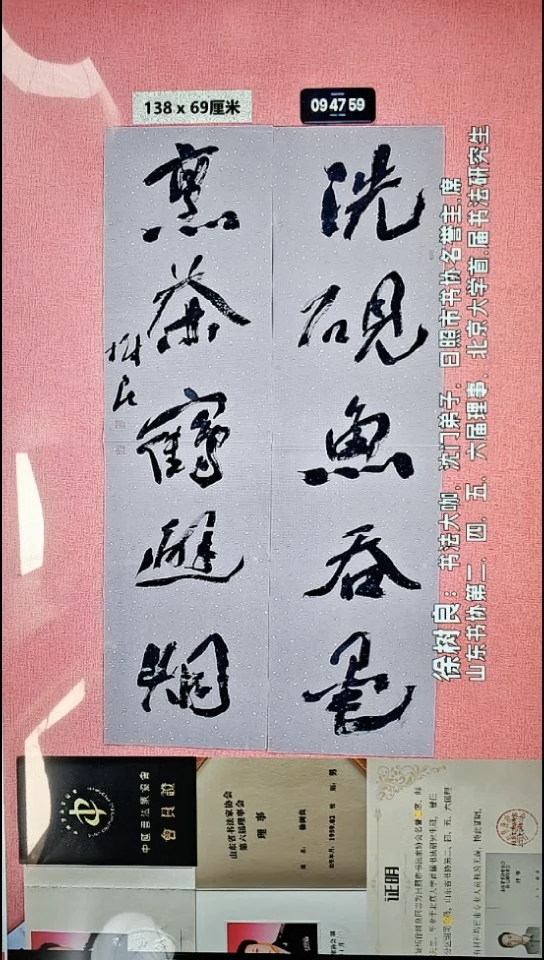 138 x 69厘米
09 47 59
洗砚鱼吞墨
烹茶鹤避烟
树良
徐树良：书法大咖，沈门弟子，日照市书协名誉主席
山东书协第二，四，五，六届理事，北京大学首届书法研究生
中国书法家协会
會員證
山东省书法家协会
第六届理事会
理事
男
证明